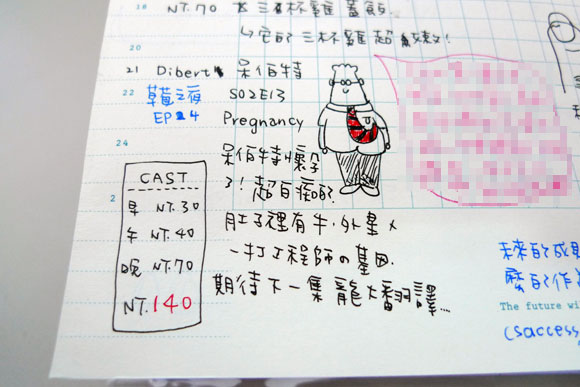 18 NT.70 大三杯雞蓋飯.
↳它的三杯雞超
20
21 Dibert 呆伯特
22 草莓之夜 S02E13
EP 4 Pregnancy
24
呆伯特懷孕
了!超白痴的.
肚子裡有牛.外星人
一打工程師の基因.
期待下一集 龍大翻譯...
CAST
2 早 NT.30
午 NT.40
晚 NT.70
NT.140
未來的成
麼的作
The future wi
(saccess